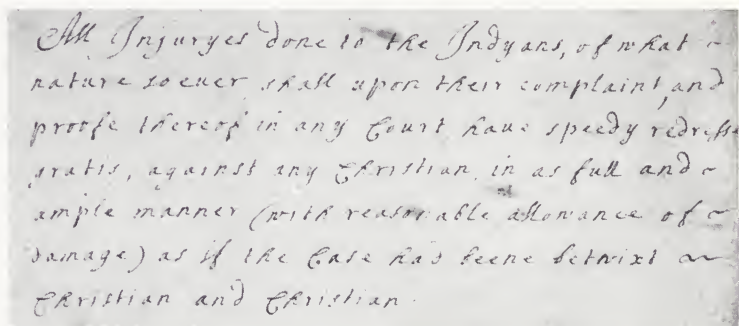 All Injuryes done to the Indyans, of what ~
nature soeuer shall upon their complaint, and
proofe thereof in any Court haue speedy redresse
gratis, against any Christian, in as full and ~
ample manner (with reasonable allowance of ~
damage) as if the Case had beene betwixt ~
Christian and Christian.